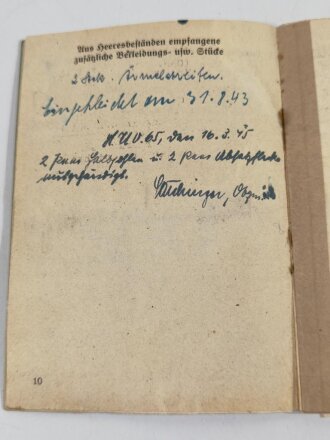 Aus Heeresbeständen empfangene
zusätzliche Bekleidungs- usw. Stücke
2 Stck. Ärmelstreifen.
Eingekleidet am 31.8.43
H.U.V. 65, den 16.3.45
2 Paar Halbsohlen u. 2 Paar Absatzflecke
ausgehändigt.
10